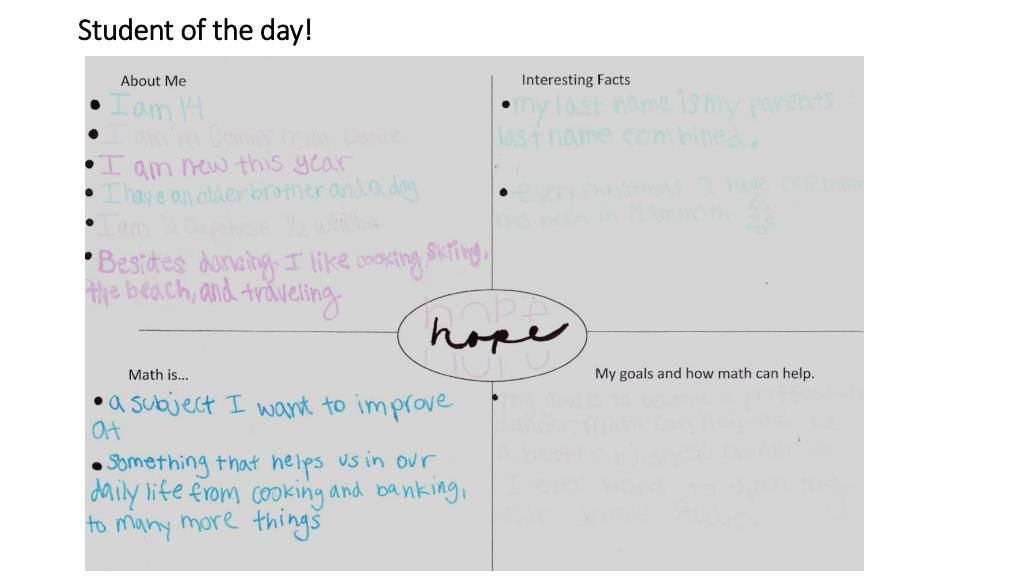 Student of the day!
About Me
• I am 14
• I am in Commercial Dance
• I am new this year
• I have an older brother and a dog
• I am ½ Japanese ½ white
• Besides dancing I like cooking, skiing,
the beach, and traveling
Interesting Facts
• my last name is my parents
last name combined.
• every christmas I have celebrated
has been in Mammoth
hope
hope
Math is...
• a subject I want to improve
at
• Something that helps us in our
daily life from cooking and banking,
to many more things
My goals and how math can help.
• my goal is to become a professional
dancer. Math can help me be
a better business owner if
I ever want to open my
own dance studio.